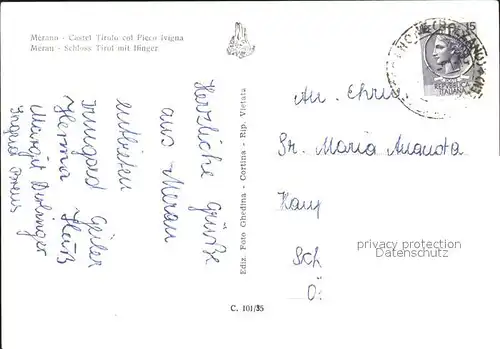 Merano - Castel Tirolo col Picco Ivigna
Meran - Schloss Tirol mit Ifinger
Herzliche Grüße
aus Meran
entbieten
Irmgard Geiler
Herma
Margit
Ingrid
Ediz. Foto Ghedina - Cortina - Rip. Vietata
15
REPUBBLICA
ITALIANA
An Ehrw.
Sr. Maria Augusta
Sch
Ö
privacy protection
Datenschutz
C. 101/35